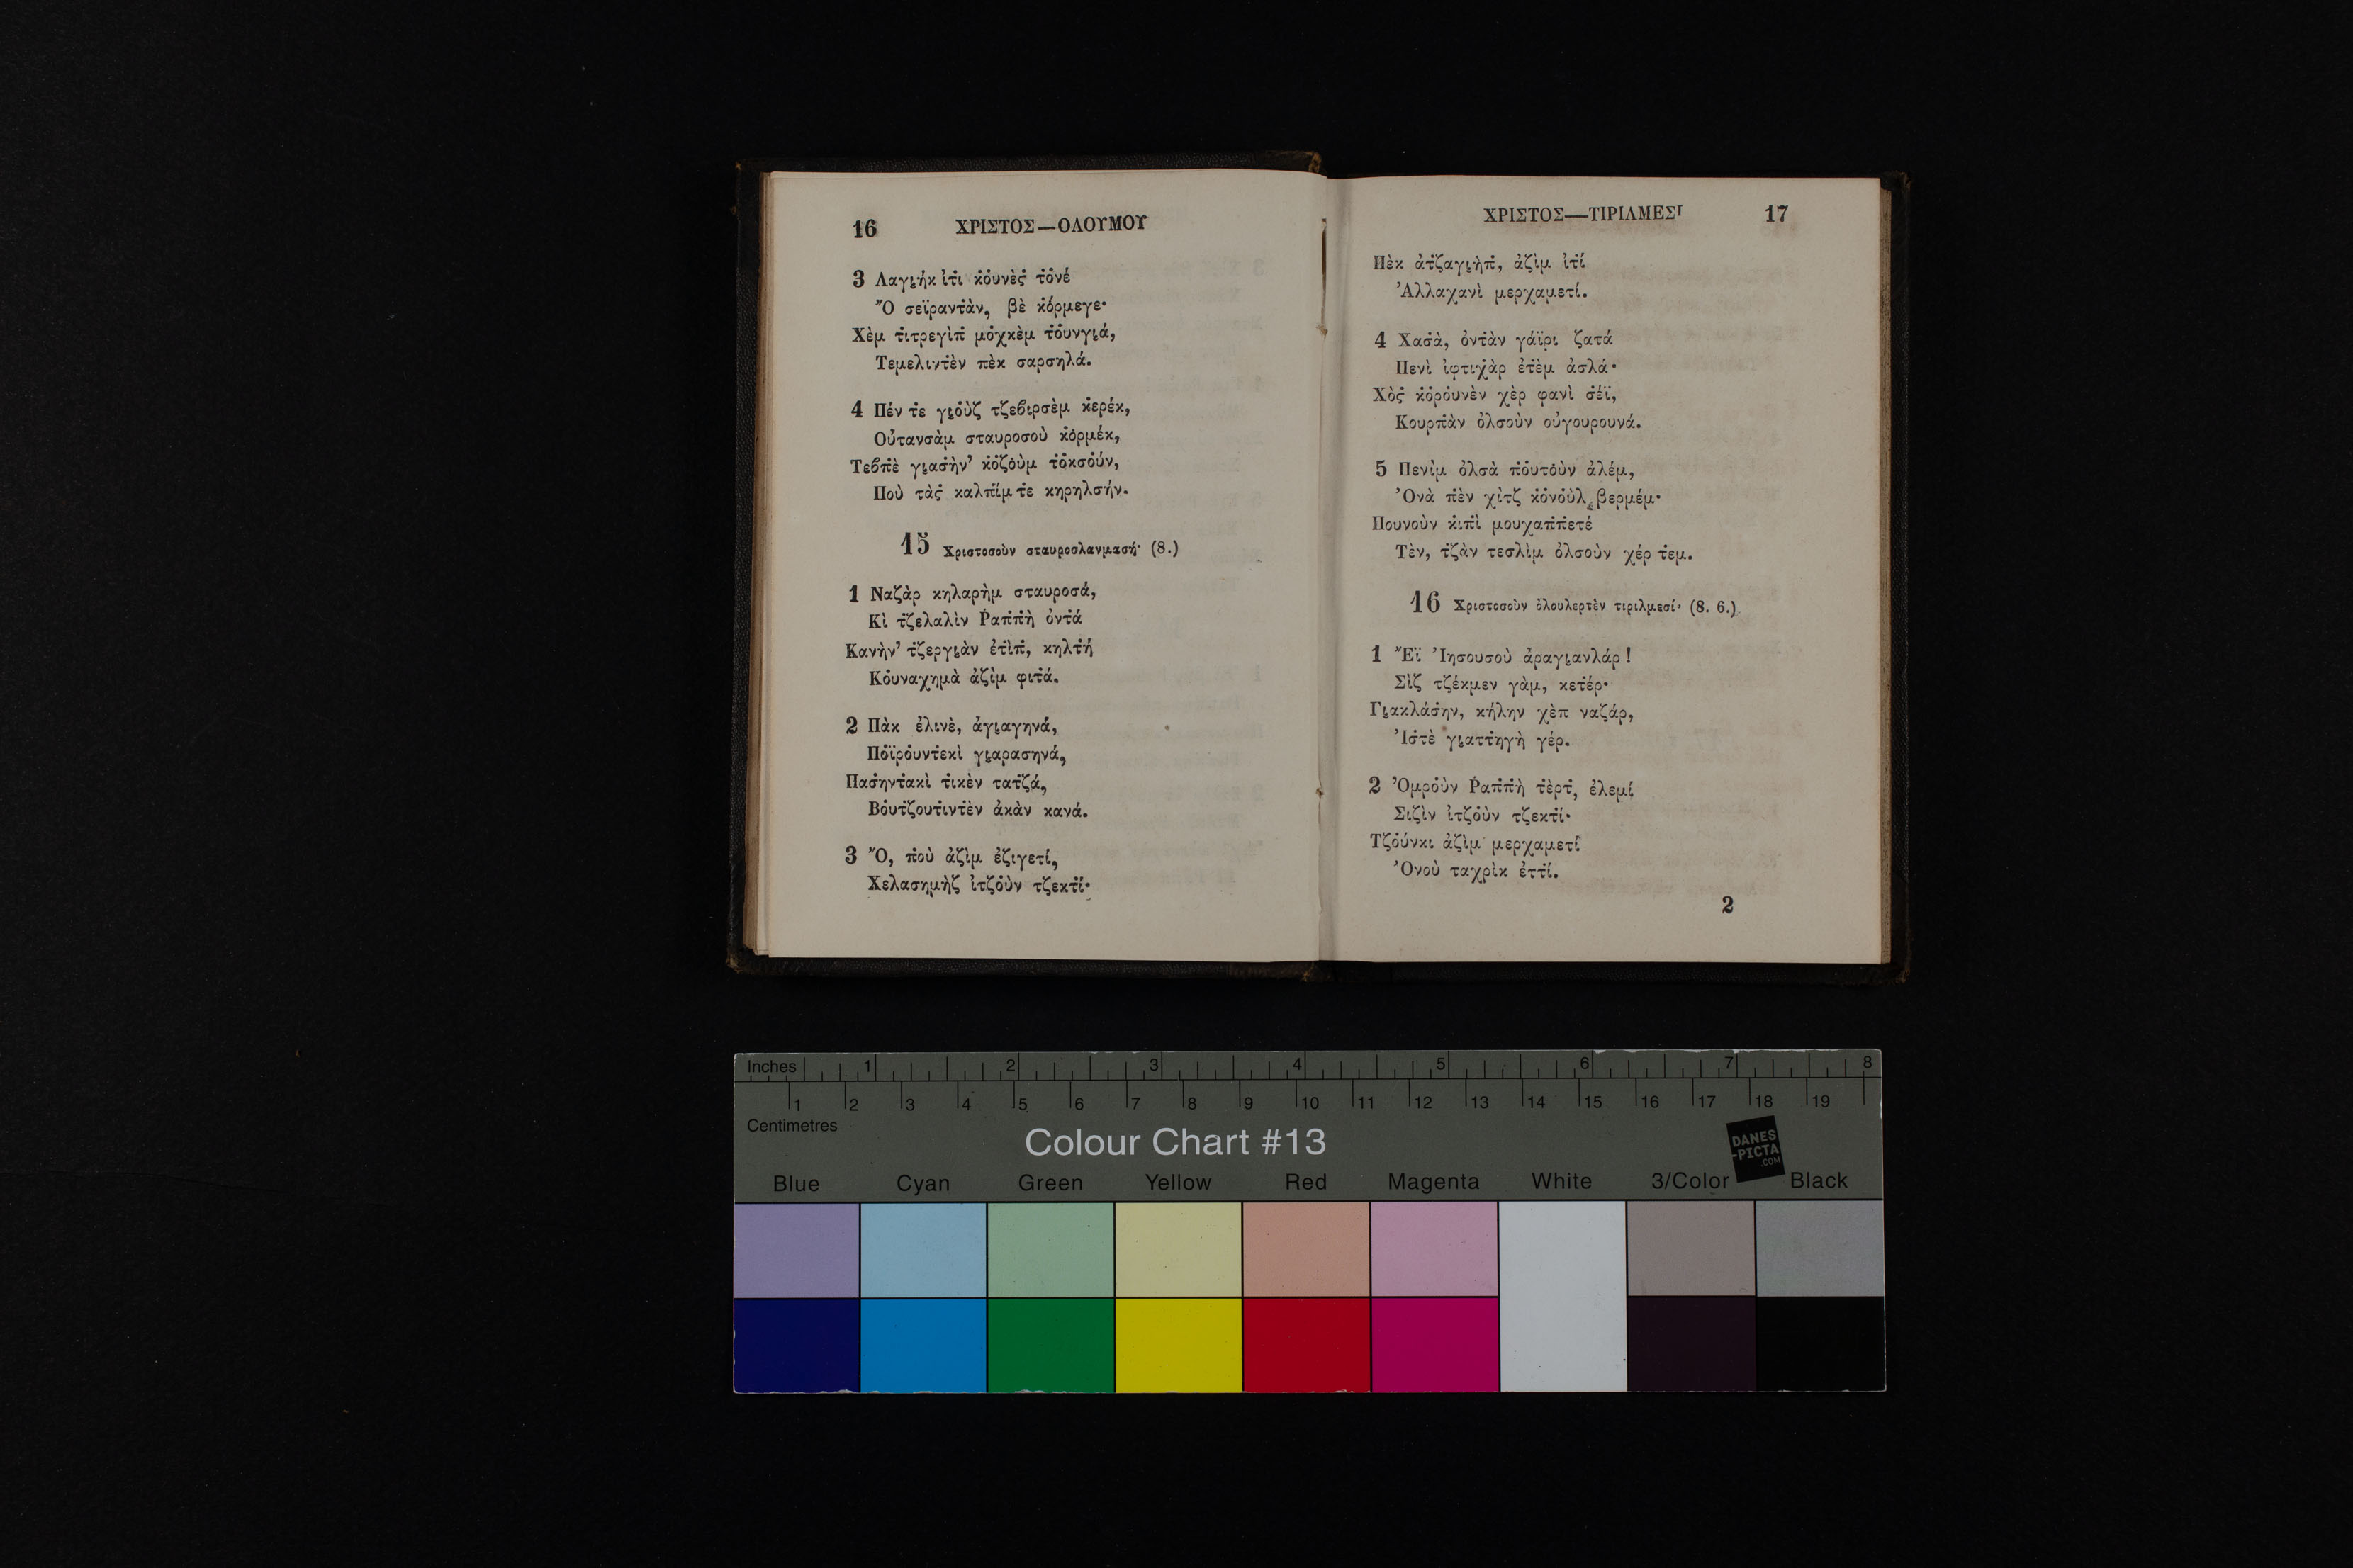 16 ΧΡΙΣΤΟΣ—ΟΛΟΥΜΟΥ
3 Λαγι̱ήκ ἰτ̇ι κ̇ο̇υνὲς̇ τ̇ο̇νέ
Ὂ σεϊραντ̇ὰν, βὲ κ̇ο̇ρμεγε·
Χὲμ τ̇ιτρεγὶπ̇ μο̇χκὲμ τ̇ο̇υνγι̱ά,
Τεμελιντ̇ὲν πὲκ σαρσηλά.
4 Πέν τ̇ε γι̱ο̇ὺζ τζεϐιρσὲμ κ̇ερέκ,
Οὐτανσὰμ σταυροσοὺ κ̇ο̇ρμέκ,
Τεϐπ̇ὲ γι̱ασ̇ὴν’ κ̇ο̇ζο̇ὺμ τ̇ο̇κσο̇ύν,
Ποὺ τὰς̇ καλπ̇ίμ τ̇ε κηρηλσήν.
15 Χριστοσοὺν σταυροσλανμασή· (8.)
1 Ναζὰρ κηλαρὴμ σταυροσά,
Κὶ τ̇ζελαλὶν Ῥαπ̇π̇ὴ ὀντ̇ά
Κανὴν’ τ̇ζεργι̱ὰν ἐτ̇ὶπ̇, κηλτ̇ή
Κο̇υναχημὰ ἀζὶμ φιτ̇ά.
2 Πὰκ ἐλινὲ, ἀγι̱αγηνά,
Πο̇ϊρο̇υντ̇εκὶ γι̱αρασηνά,
Πασ̇ηντ̇ακὶ τ̇ικὲν τατ̇ζά,
Βο̇υτ̇ζουτ̇ιντ̇ὲν ἀκὰν κανά.
3 Ὂ, π̇οὺ ἀζὶμ ἐζιγετί,
Χελασημὴζ ἰτζο̇ὺν τζεκτ̇ί·
ΧΡΙΣΤΟΣ—ΤΙΡΙΛΜΕΣΙ 17
Πὲκ ἀτ̇ζαγι̱ὴπ̇, ἀζὶμ ἰτ̇ί
Ἀλλαχανὶ μερχαμετί.
4 Χασ̇ὰ, ὀντ̇ὰν γάϊρι ζατά
Πενὶ ἰφτιχὰρ ἐτ̇ὲμ ἀσλά·
Χὸς̇ κ̇ο̇ρο̇υνὲν χὲρ φανὶ σ̇έϊ,
Κουρπ̇ὰν ὀλσοὺν οὐγουρουνά.
5 Πενὶμ ὀλσὰ π̇ο̇υτο̇ὺν ἀλέμ,
Ὀνὰ π̇ὲν χὶτζ κ̇ο̇νο̇ὺλ βερμέμ·
Πουνοὺν κ̇ιπ̇ὶ μουχαπ̇π̇ετέ
Τὲν, τ̇ζὰν τεσλὶμ ὀλσοὺν χέρ τ̇εμ.
16 Χριστοσοὺν ὀλουλερτὲν τιριλμεσί· (8. 6.)
1 Ἒϊ Ἰησουσοὺ ἀραγι̱ανλάρ!
Σὶζ τζέκμεν γὰμ, κετ̇έρ·
Γι̱ακλάσ̇ην, κήλην χὲπ ναζάρ,
Ἰσ̇τὲ γι̱αττ̇ηγὴ γέρ.
2 Ὀμρο̇ὺν Ῥαπ̇π̇ὴ τ̇ὲρτ̇, ἐλεμί
Σιζὶν ἰτζο̇ὺν τζεκτ̇ί·
Τζο̇ύνκι ἀζὶμ μερχαμετί
Ὀνοὺ ταχρὶκ ἐττ̇ί.
2
Inches 1 2 3 4 5 6 7 8
1 2 3 4 5 6 7 8 9 10 11 12 13 14 15 16 17 18 19
Centimetres
Colour Chart #13
DANES
-PICTA
.COM
Blue Cyan Green Yellow Red Magenta White 3/Color Black